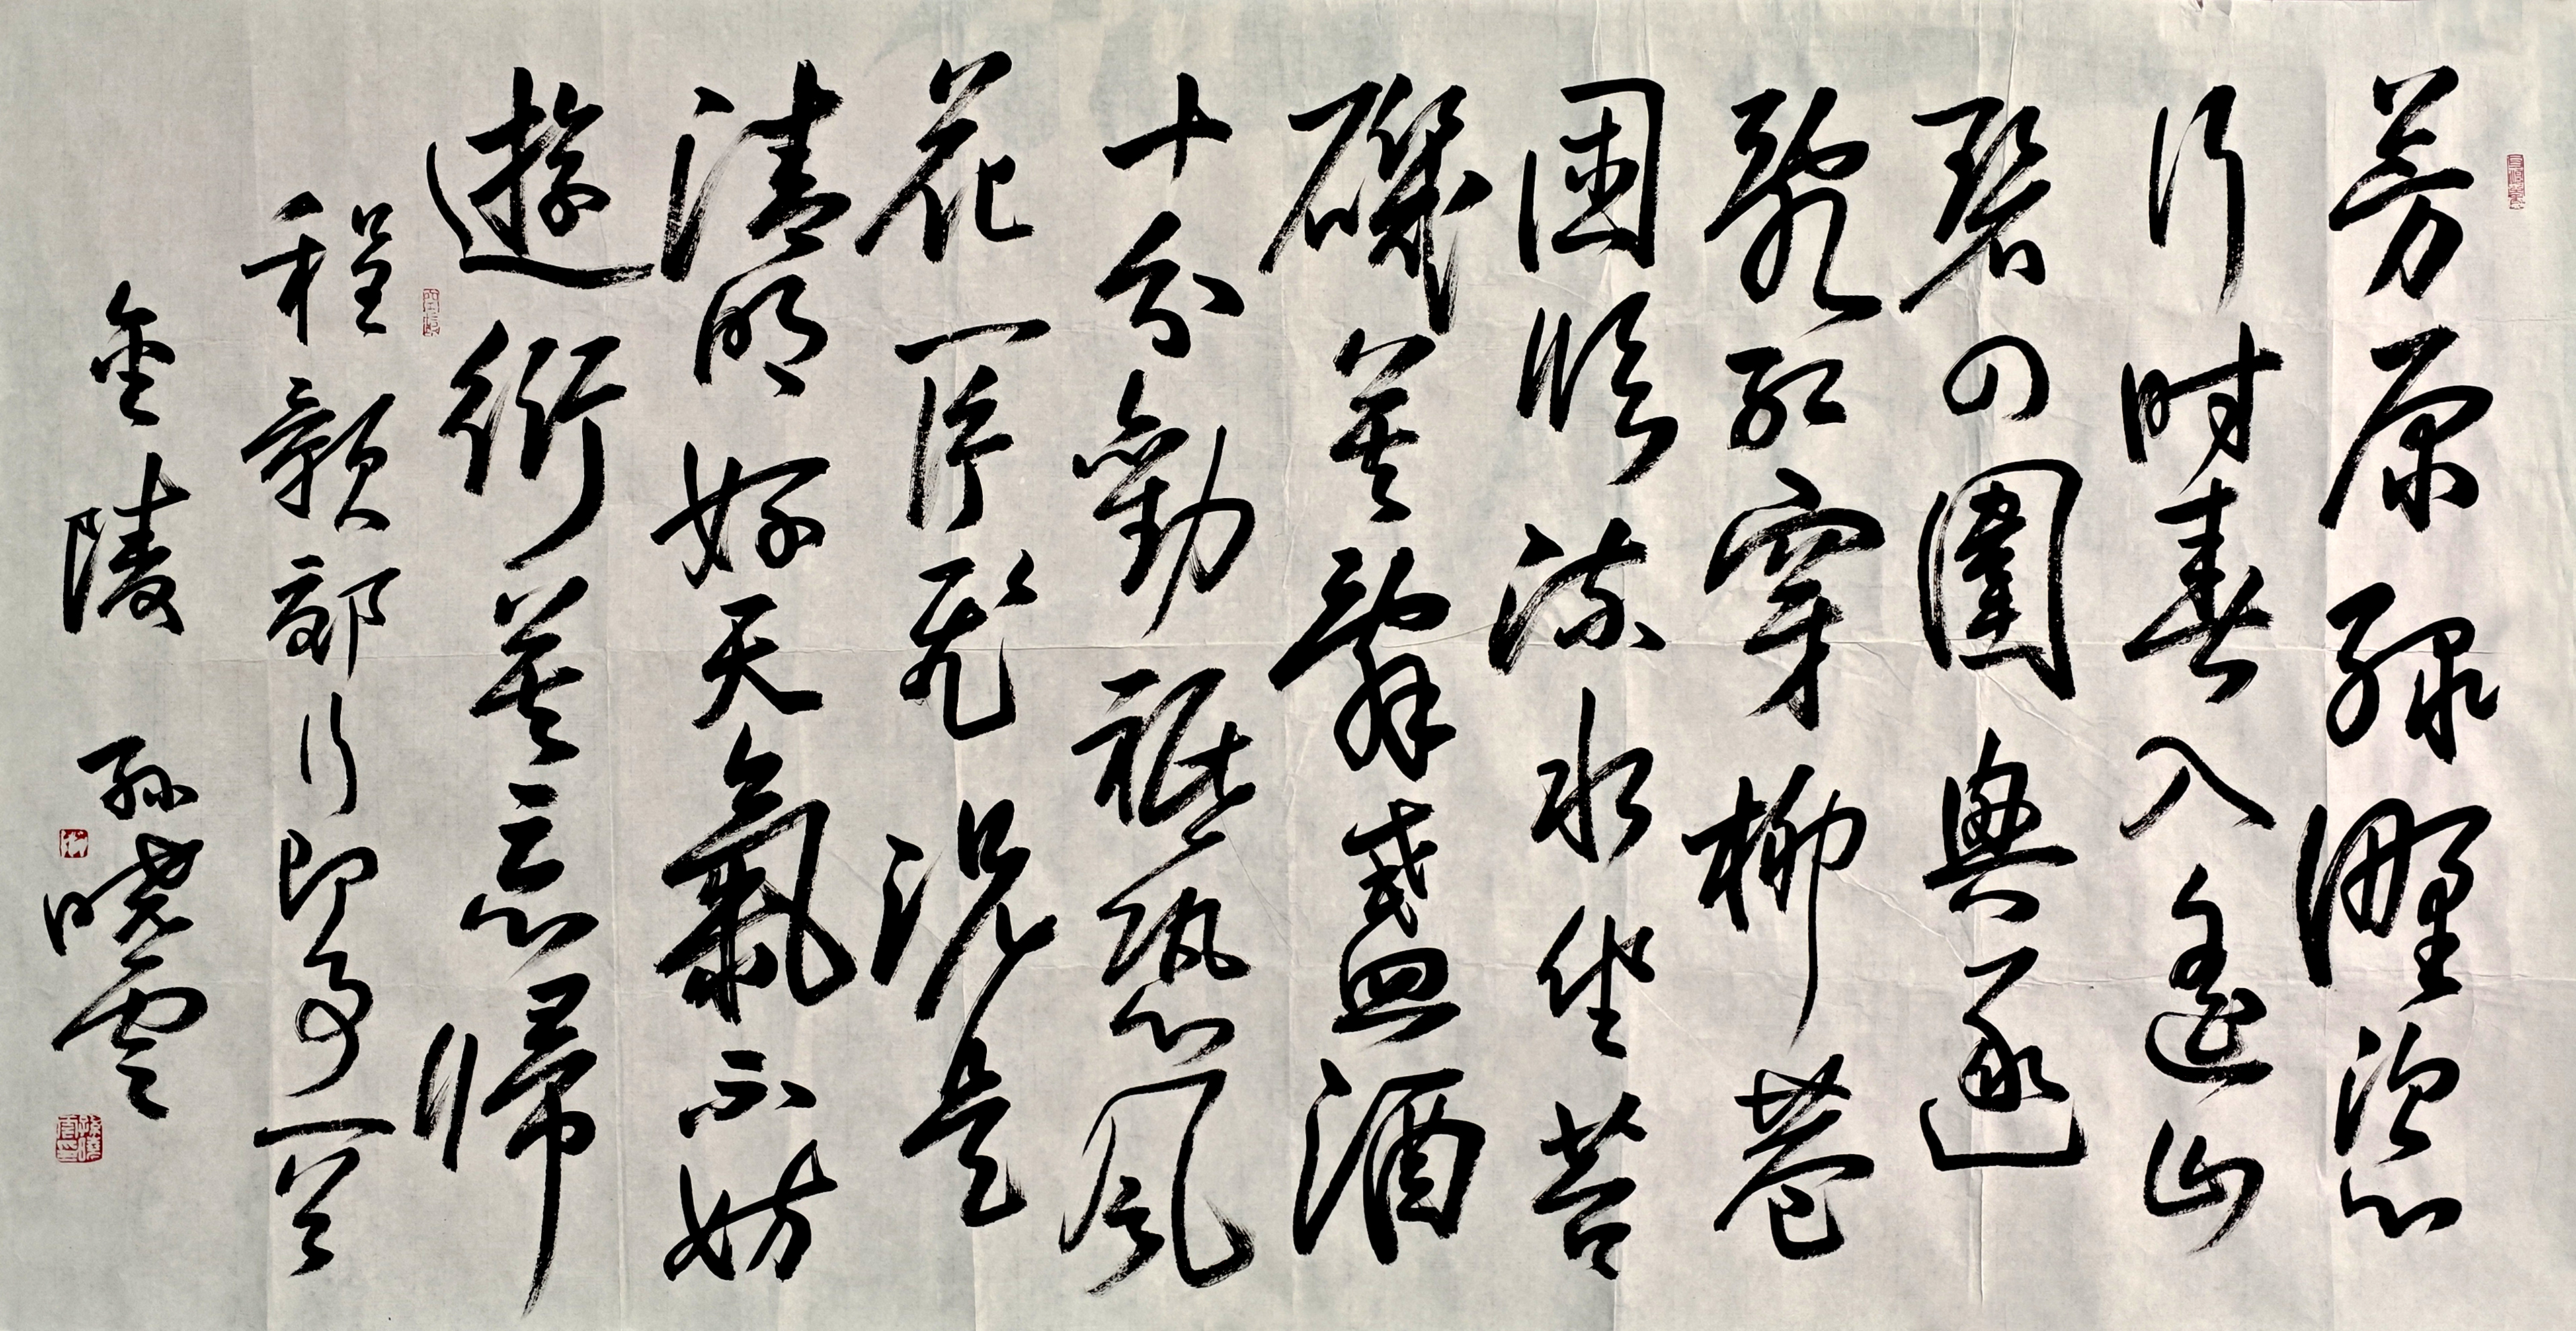 芳原綠野恣
行時春入遙山
碧四圍興逐
亂紅穿柳巷
困臨流水坐苔
磯莫辭盞酒
十分勸祇恐風
花一片飛況是
清明好天氣不妨
遊衍莫忘歸
程顥郊行即事一首
金陵 孫曉雲